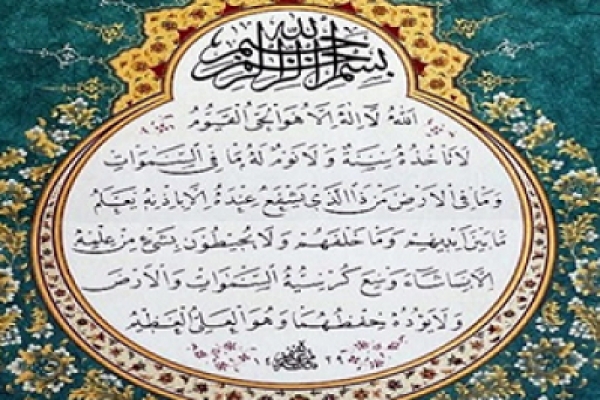 بسم الله الرحمن الرحيم
الله لا إله إلا هو الحي القيوم
لا تأخذه سنة ولا نوم له ما في السموات
وما في الأرض من ذا الذي يشفع عنده إلا بإذنه يعلم
ما بين أيديهم وما خلفهم ولا يحيطون بشيء من علمه
إلا بما شاء وسع كرسيه السموات والأرض
ولا يؤده حفظهما وهو العلي العظيم